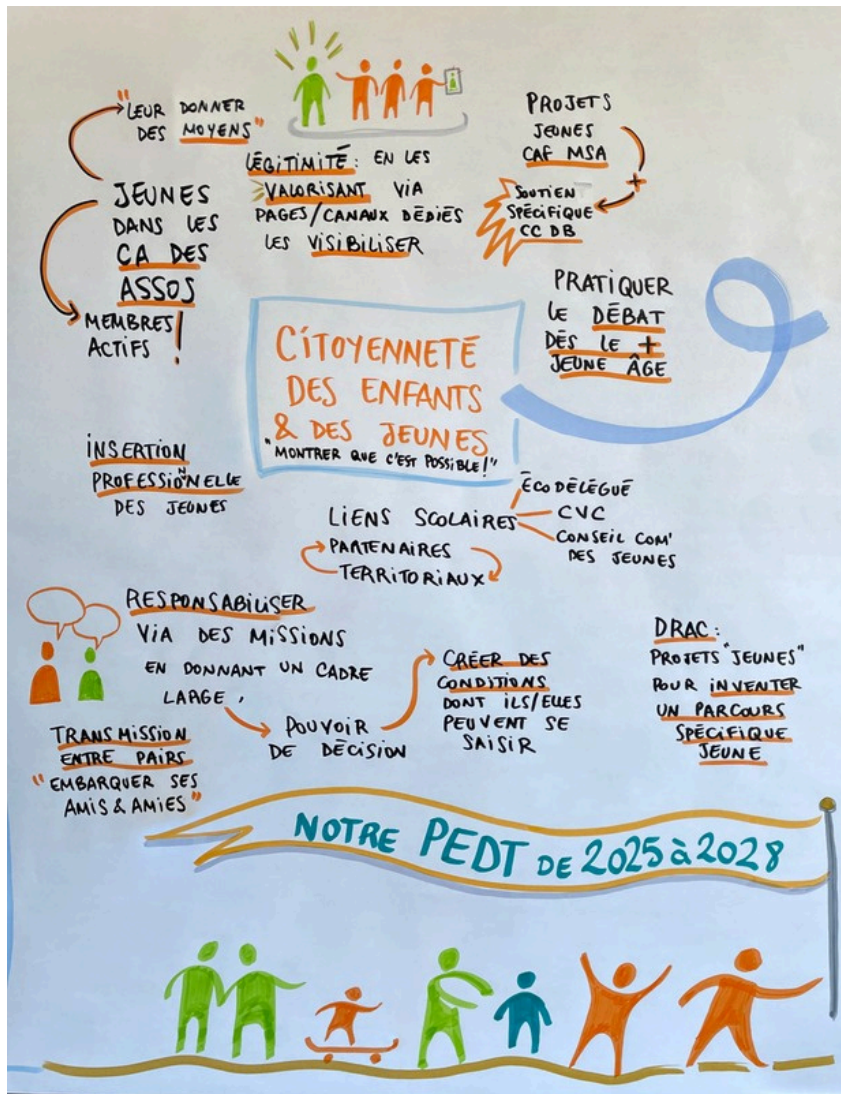 "LEUR DONNER
DES MOYENS"
JEUNES
DANS LES
CA DES
ASSOS
MEMBRES
ACTIFS !
LÉGITIMITÉ : EN LES
VALORISANT VIA
PAGES/CANAUX DÉDIÉS
LES VISIBILISER
PROJETS
JEUNES
CAF MSA
+
SOUTIEN
SPÉCIFIQUE
CC DB
PRATIQUER
LE DÉBAT
DÈS LE +
JEUNE ÂGE
CITOYENNETÉ
DES ENFANTS
& DES JEUNES
"MONTRER QUE C'EST POSSIBLE !"
INSERTION
PROFESSIONNELLE
DES JEUNES
LIENS SCOLAIRES
ÉCODÉLÉGUÉ
CVC
CONSEIL COM'
DES JEUNES
PARTENAIRES
TERRITORIAUX
RESPONSABILISER
VIA DES MISSIONS
EN DONNANT UN CADRE
LARGE,
POUVOIR
DE DÉCISION
CRÉER DES
CONDITIONS
DONT ILS/ELLES
PEUVENT SE
SAISIR
DRAC :
PROJETS "JEUNES"
POUR INVENTER
UN PARCOURS
SPÉCIFIQUE
JEUNE
TRANSMISSION
ENTRE PAIRS
"EMBARQUER SES
AMIS & AMIES"
NOTRE PEDT DE 2025 à 2028